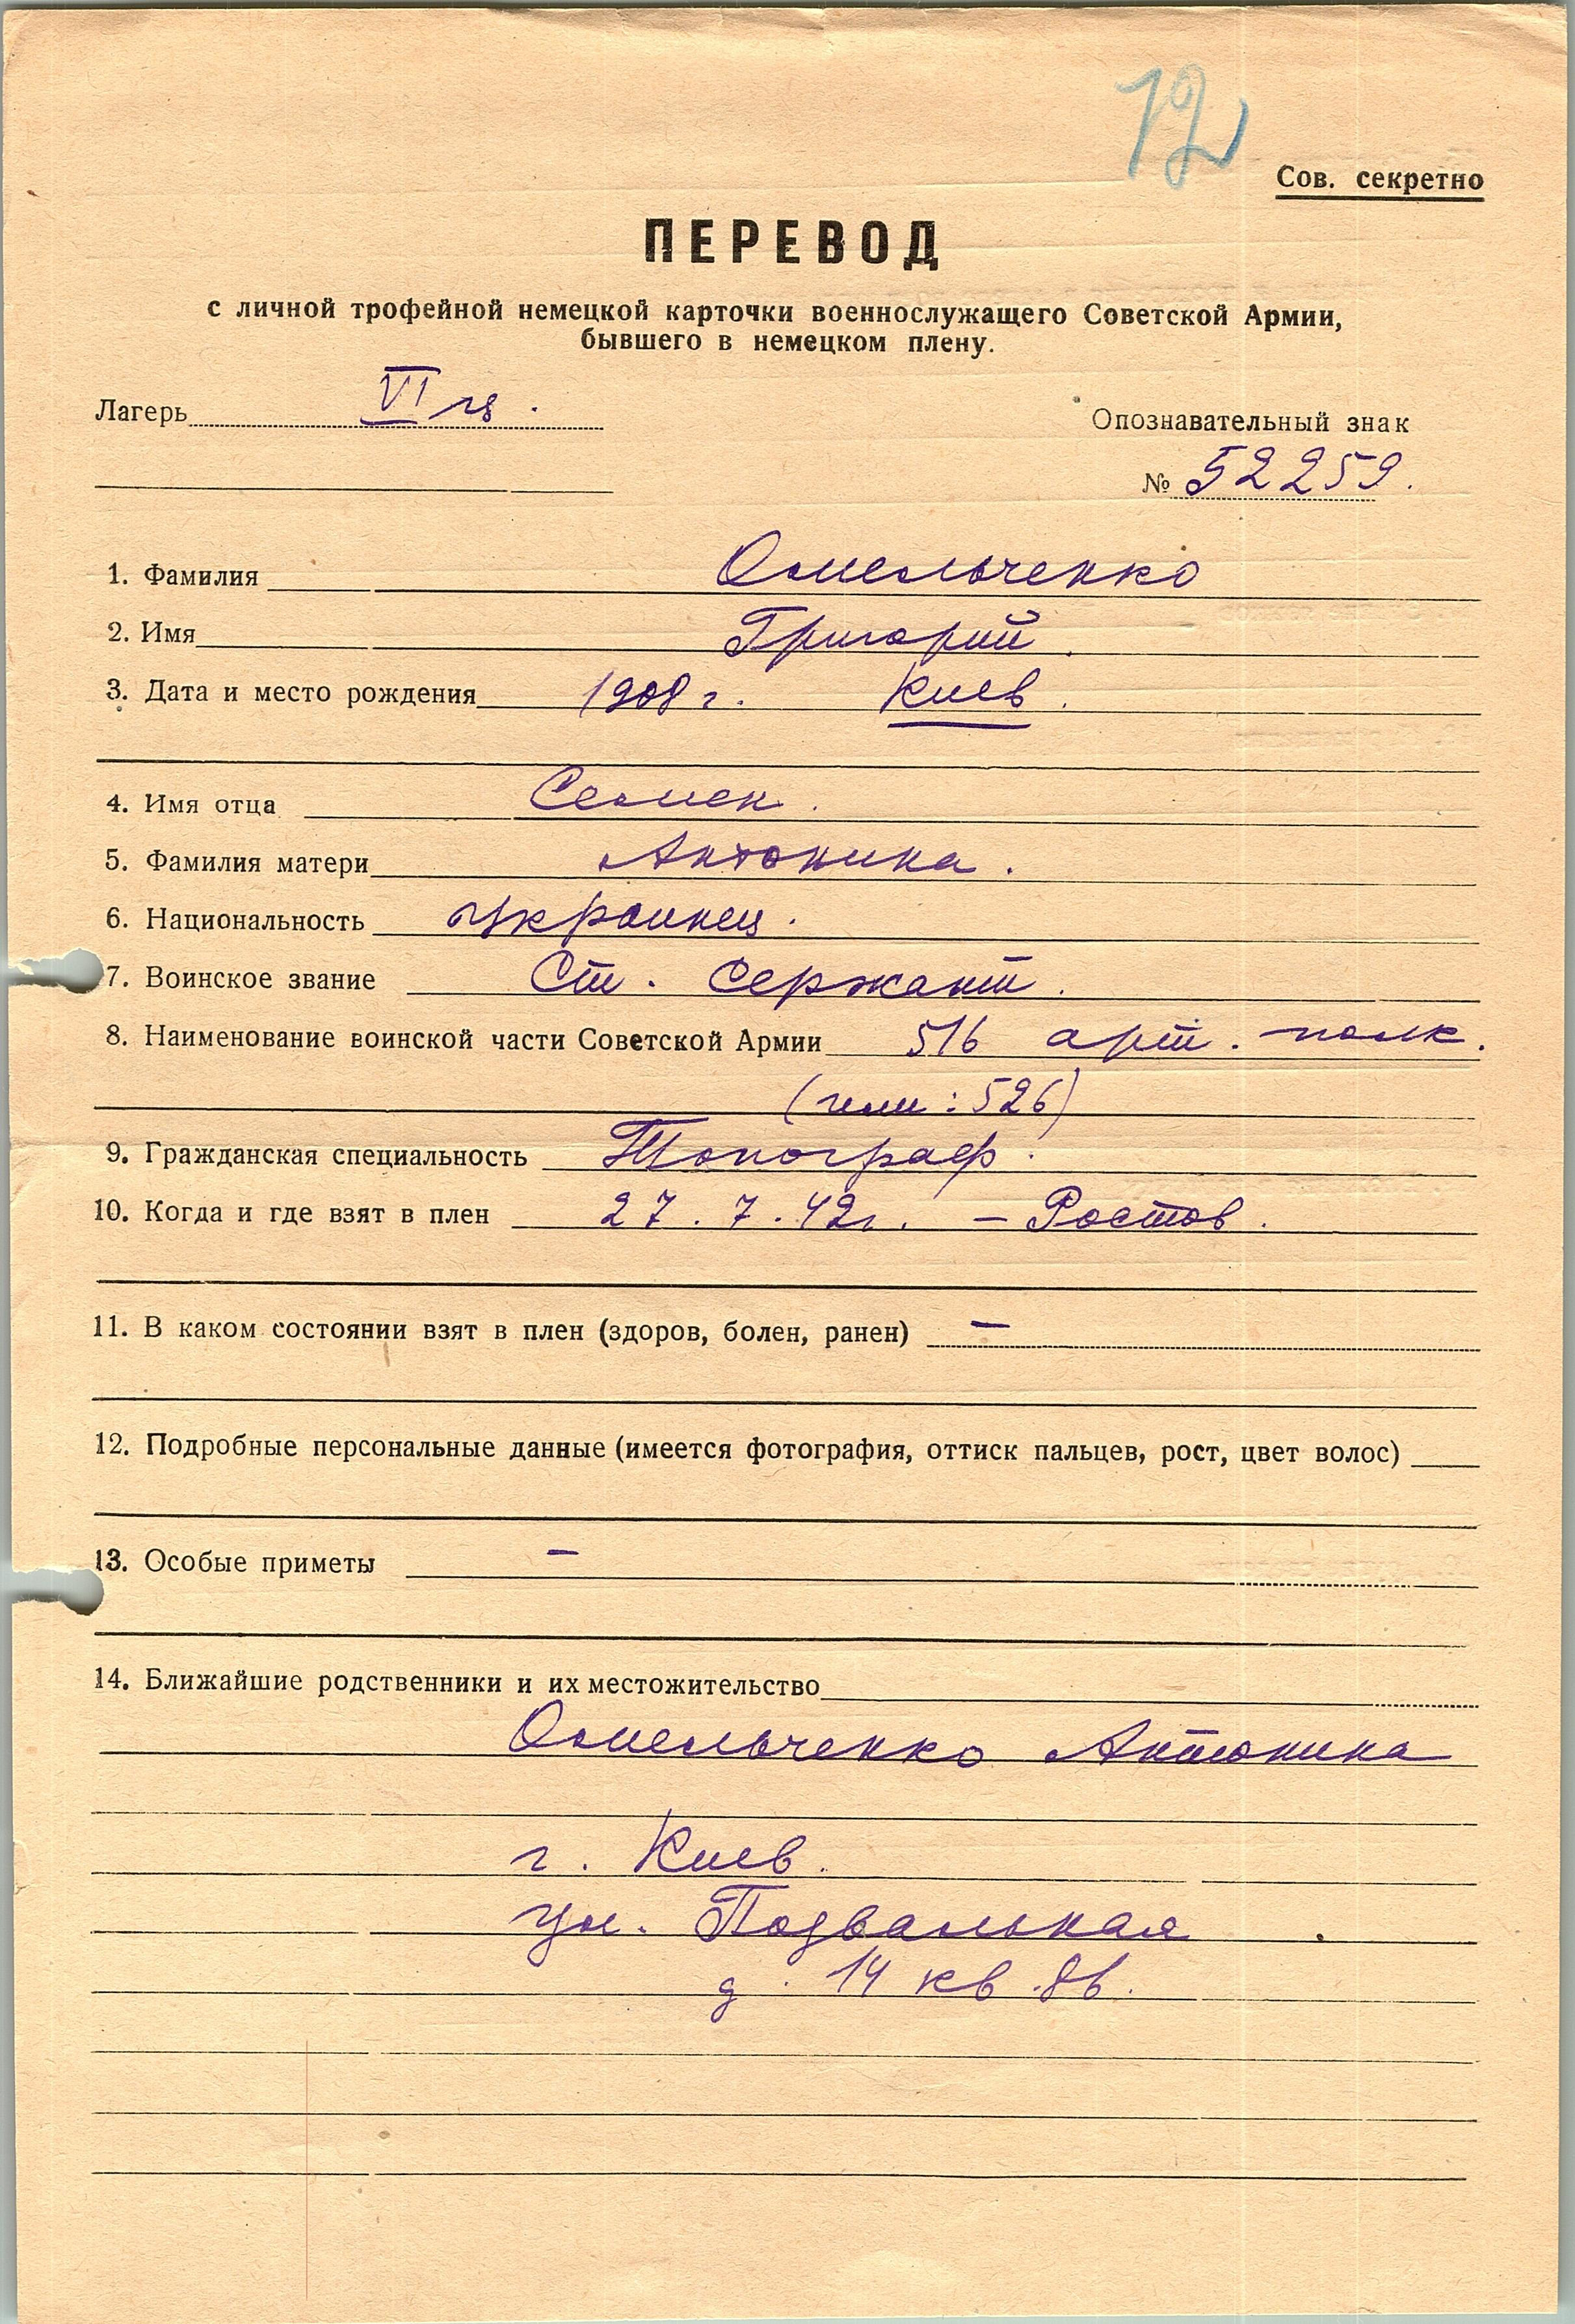 12
Сов. секретно
ПЕРЕВОД
с личной трофейной немецкой карточки военнослужащего Советской Армии,
бывшего в немецком плену.
Лагерь VI
Опознавательный знак
№ 52259.
1. Фамилия Омельченко
2. Имя Григорий.
3. Дата и место рождения 1908 г. Киев.
4. Имя отца Семен.
5. Фамилия матери Антонина.
6. Национальность украинец.
7. Воинское звание Ст. сержант.
8. Наименование воинской части Советской Армии 516 арт. полк.
(или: 526)
9. Гражданская специальность Топограф.
10. Когда и где взят в плен 27.7.42г. – Ростов.
11. В каком состоянии взят в плен (здоров, болен, ранен) –
12. Подробные персональные данные (имеется фотография, оттиск пальцев, рост, цвет волос)
13. Особые приметы –
14. Ближайшие родственники и их местожительство
Омельченко Антонина
г. Киев.
ул. Подвальная
д. 14 кв.